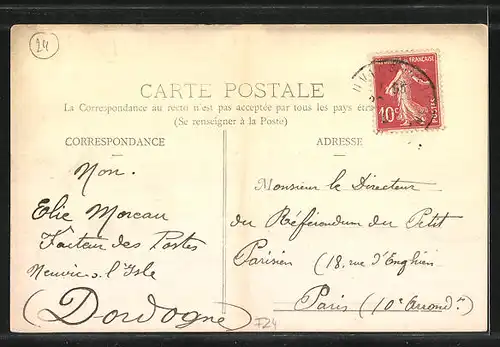 24
CARTE POSTALE
La Correspondance au recto n'est pas acceptée par tous les pays
(Se renseigner à la Poste)
CORRESPONDANCE
Non.
Elie Moreau
Facteur des Postes
Neuvic s. l'Isle
(Dordogne)
F24
ADRESSE
Monsieur le Directeur
du Référendum du Petit
Parisien (18. rue d'Enghien
Paris (10e Arrond.
FRANÇAISE
10c
POSTES